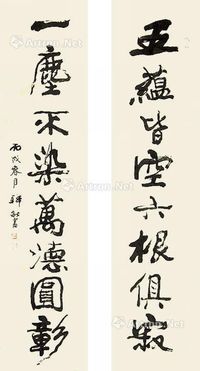 五蘊皆空六根俱寂
一塵不染萬德圓彰
丙戌春月
Artron.Net
Artron.Net
Artron.Net
Artron.Net